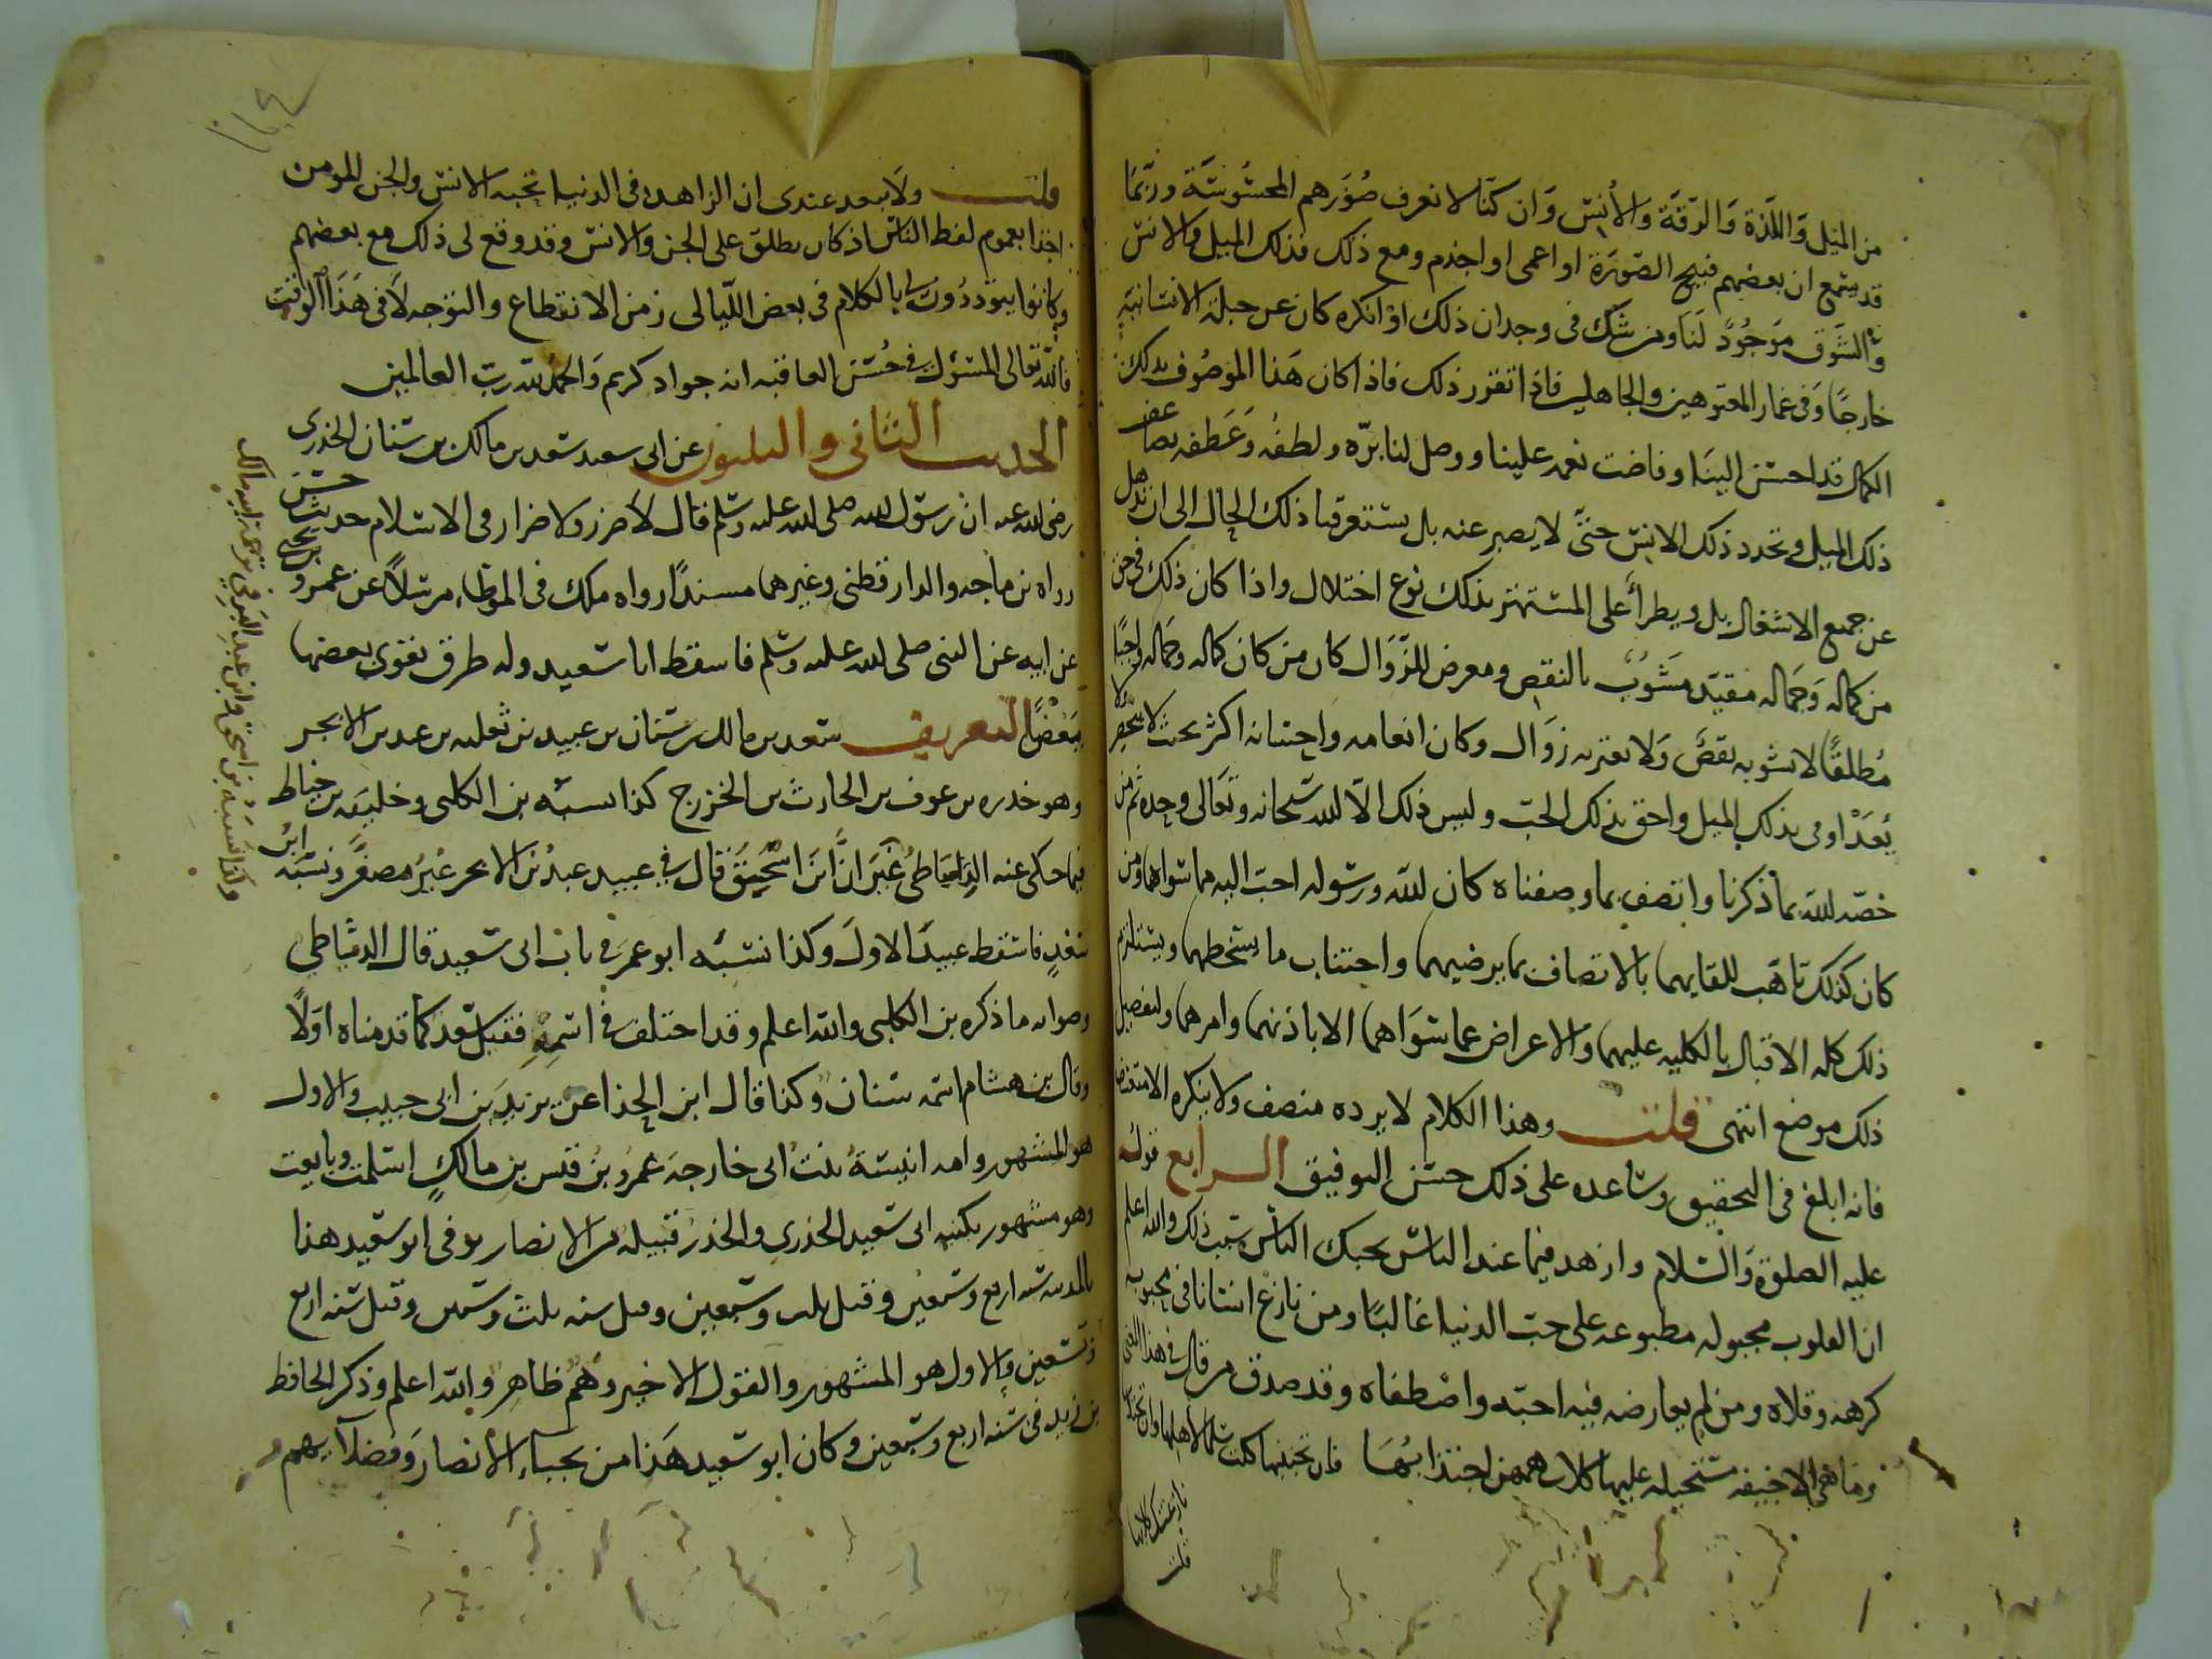 من الميل واللذة والرقة والأنس وان كنا لا نعرف صورهم المحسوسة وربما
قد يتمع ان بعضهم قبيح الصورة او اعمى او اجذم ومع ذلك فذلك الميل والانس
والشوق موجود لنا ومن شك فى وجدان ذلك او انكره كان عن جبلة الانسانية
خارجا وفى غمار المعتوهين والجاهلين فاذا تقرر ذلك فاذا كان هذا الموصوف بذلك
الكمال قد احسن الينا وفاضت نعمه علينا ووصل لنا بره ولطفه وعطفه تضاعف
ذلك الميل وتجدد ذلك الانس حتى لا يصبر عنه بل يستغرقنا ذلك الحال الى ان نذهل
عن جميع الاشغال بل ويطرأ على المستهتر بذلك نوع اختلال واذا كان ذلك فى حق
من كماله وجماله مقيد مشوب بالنقص ومعرض للزوال كان من كان كماله وجماله واجبا
مطلقا لا يشوبه نقص ولا يعتريه زوال وكان انعامه واحسانه اكثر بحيث لا ينحصر ولا
يعد اولى بذلك الميل واحق بذلك الحب وليس ذلك الا لله سبحانه وتعالى وحده ثم من
خصه الله بما ذكرنا واتصف بما وصفناه كان لله ورسوله احب اليه مما سواهما ومن
كان كذلك تاهب للقايهما بالاتصاف بما يرضيهما واجتناب ما يسخطهما ويستلزم
ذلك كله الاقبال بالكلية عليهما والاعراض عما سواهما الا باذنهما وامرهما ولتفصيل
ذلك موضع انتهى قلت وهذا الكلام لا يرده منصف ولا ينكره الا متعسف
فانه ابلغ فى التحقيق وساعده على ذلك حسن التوفيق الرابع قوله
عليه الصلوة والسلام وازهد فيما عند الناس يحبك الناس سبب ذلك والله اعلم
ان القلوب مجبوله مطبوعه على حب الدنيا غالبا ومن نازع انسانا فى محبوبه
كرهه وقلاه ومن لم يعارضه فيه احبه واصطفاه وقد صدق من قال فى هذا المعنى
وما هى الا جيفه مستحيله عليها كلاب همهن اجتذابها فان تجتنبها كنت سلما لاهلها وان تجتذبها
نازعتك كلابها
قلت
قلت ولا يبعد عندى ان الزاهد فى الدنيا تحبه الانس والجن المومن
اخذا بعموم لفظ الناس اذ كان يطلق على الجن والانس وقد وقع لى ذلك مع بعضهم
وكانوا يتوددون لى بالكلام فى بعض الليالى زمن الانقطاع والتوجه لا فى هذا الوقت
فالله تعالى المسئول فى حسن العاقبه انه جواد كريم والحمد لله رب العالمين
الحديث الثانى والثلثون عن ابى سعيد سعد بن مالك بن سنان الخدرى
رضى الله عنه ان رسول الله صلى الله عليه وسلم قال لا ضرر ولا ضرار فى الاسلام حديث حسن
رواه بن ماجه والدارقطنى وغيرهما مسندا ورواه ملك فى الموطاء مرسلا عن عمرو بن يحيى
عن ابيه عن النبى صلى الله عليه وسلم فاسقط ابا سعيد وله طرق يقوى بعضها
بعضا التعريف سعد بن مالك بن سنان بن عبيد بن ثعلبه بن عبد بن الابجر
وهو خدره بن عوف بن الحارث بن الخزرج كذا نسبه بن الكلبى وخليفه بن خياط
فيما حكى عنه الدمياطى غير ان ابن اسحق قال فى عبيد عبد بن الابجر غير مصغر ونسبه ابن
سعد فاسقط عبيد الاول وكذا نسبه ابو عمر فى باب ابى سعيد قال الدمياطى
وصوابه ما ذكره بن الكلبى والله اعلم وقد اختلف فى اسمه فقيل سعد كما قدمناه اولا
وقال بن هشام اسمه سنان وكذا قال ابن الحذا عن يزيد بن ابى حبيب والاول
هو المشهور وامه انيسة بنت ابى خارجه عمرو بن قيس بن مالك اسلمت وبايعت
وهو مشهور بكنيته ابى سعيد الخدرى والخدر قبيله من الانصار توفى ابو سعيد هذا
بالمدينه سنه اربع وسبعين وقيل ثلث وسبعين وقيل سنه ثلث وستين وقيل سنه اربع
وتسعين والاول هو المشهور والقول الاخير وهم ظاهر والله اعلم وذكر الحافظ
بن زيد فى سنه اربع وسبعين وكان ابو سعيد هذا من نجباء الأنصار وفضلآيهم
وكذا نسبه بن اسحق وابن عبد البر فى ترجمة ابيه مالك